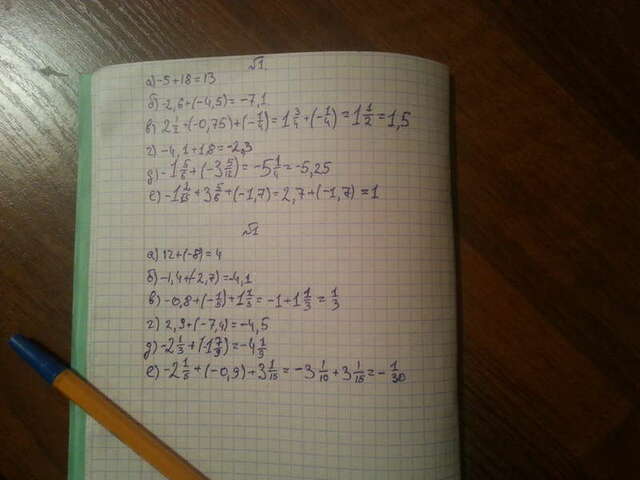 №1.
а) -5+18=13
б) -2,6+(-4,5)=-7,1
в) 2 1/2+(-0,75)+(-1/4)=1 3/4+(-1/4)=1 1/2=1,5
г) -4,1+1,8=-2,3
д) -1 5/6+(-3 5/12)=-5 1/4=-5,25
е) -1 2/15+3 5/6+(-1,7)=2,7+(-1,7)=1
№1
а) 12+(-8)=4
б) -1,4+(-2,7)=-4,1
в) -0,8+(-1/5)+1 1/3=-1+1 1/3=1/3
г) 2,9+(-7,4)=-4,5
д) -2 1/3+(-1 7/9)=-4 1/9
е) -2 1/5+(-0,9)+3 1/15=-3 1/10+3 1/15=-1/30